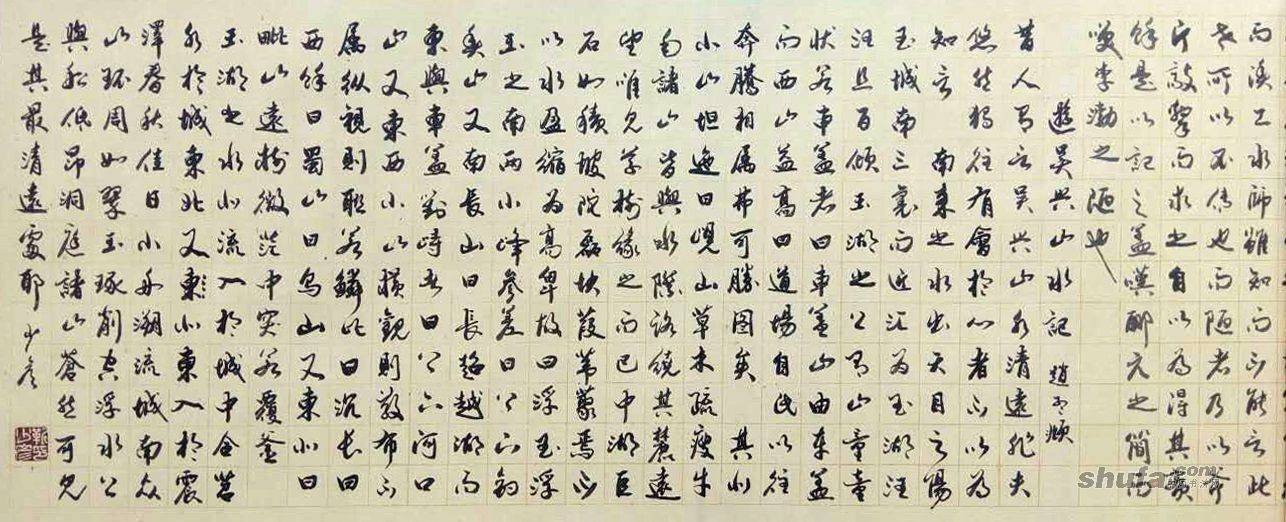 而漁工水師雖知而不能言此
世所以不傳也而陋者乃以斧
斤敲擊而求之自以為得其實
餘是以記之蓋嘆酈元之簡而
笑李渤之陋也
遊吳興山水記 趙孟頫
昔人有言吳興山水清遠非夫
悠然獨往有會於心者不以為
知言 南來之水出天目之陽
至城南三里而近汇為玉湖汪
汪且百頃玉湖之上有山童童
狀若車蓋者曰車蓋山由車蓋
而西山益高曰道場自此以往
奔騰相属弗可勝图矣 其北
小山坦迤曰峴山草木疏瘦牛
白諸山皆與水際路繞其麓遠
望唯見草樹緣之而已中湖巨
石如積坡陀磊块葭葦叢焉不
以水盈縮為高卑故曰浮玉浮
玉之南兩小峰參差曰上下釣
魚山又南長山曰長超越湖而
東與車蓋對峙者曰上下河口
山又東西小山橫觀則散布不
属縱視則聯若鱗此曰沉長曰
西餘曰蜀山曰烏山又東北曰
毗山遠樹微茫中突若覆釜
玉湖之水北流入於城中合苕
水於城東北又東北東入於震
澤春秋佳日小舟溯流城南众
山環周如翠玉琢削空浮水上
與船低昂洞庭諸山蒼然可見
是其最清遠處耶 少彥
shufa.com